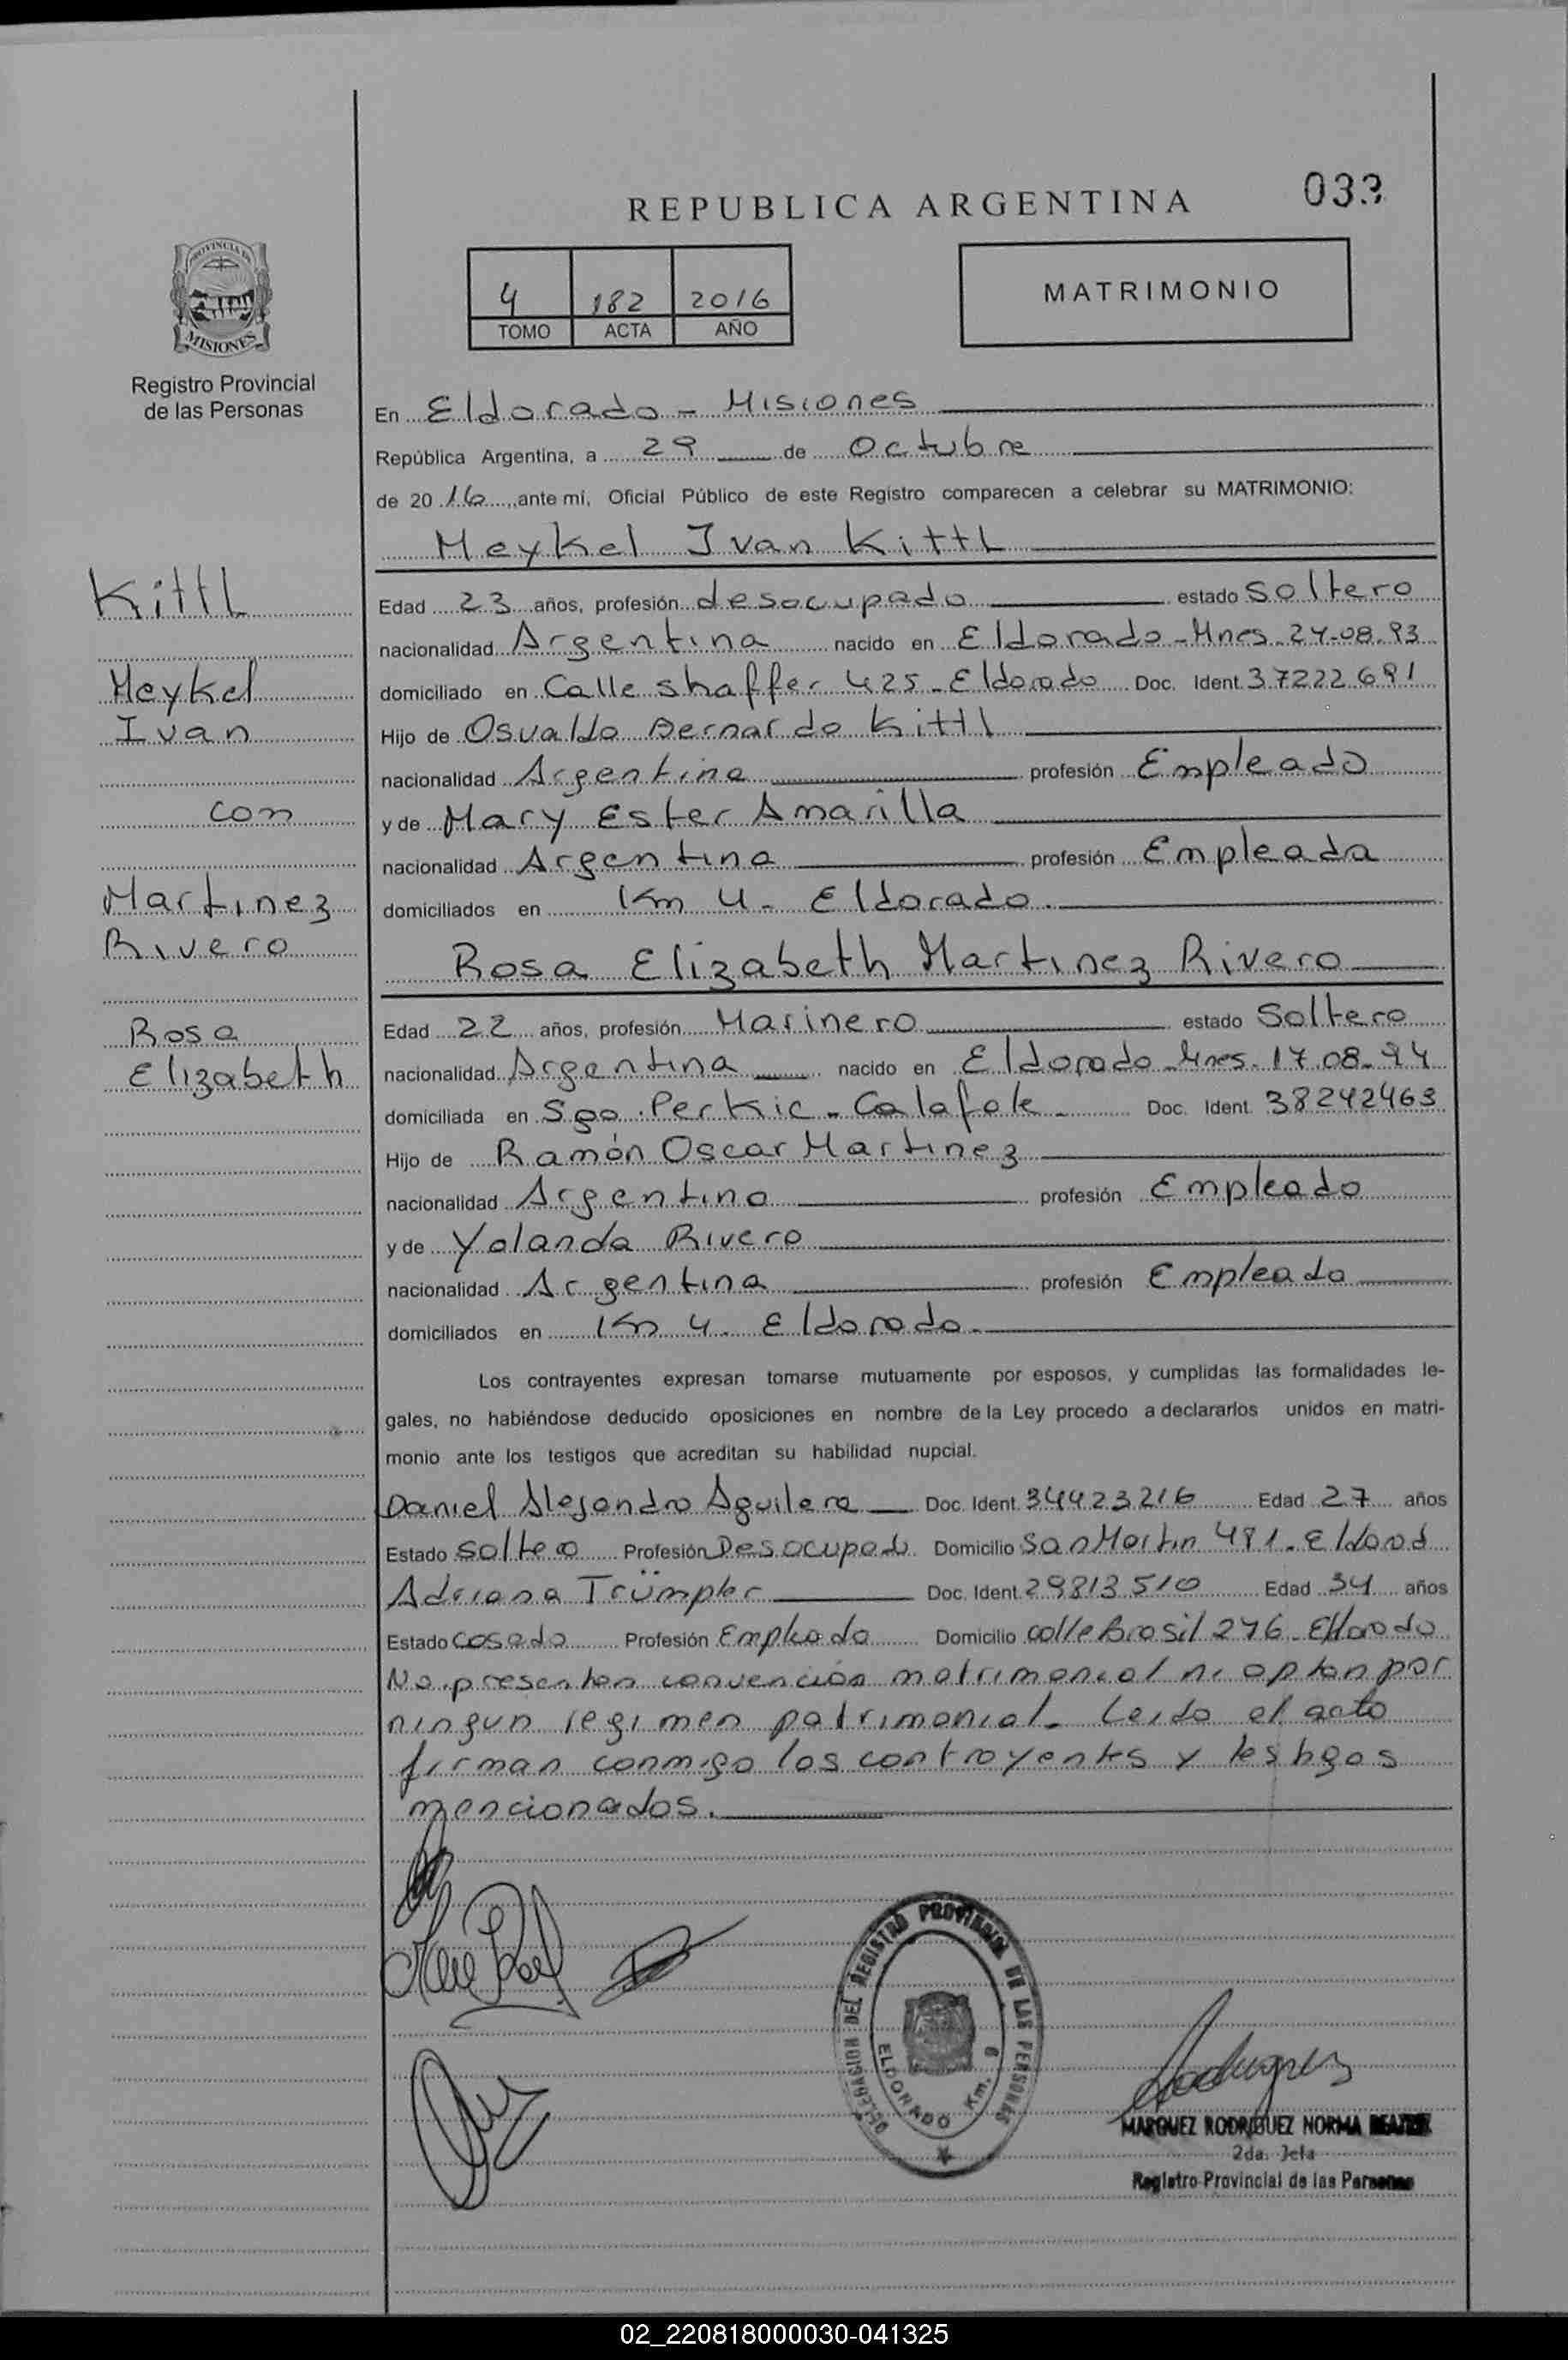 REPUBLICA ARGENTINA
033
PROVINCIA DE
MISIONES
Registro Provincial
de las Personas
4 182 2016
TOMO ACTA AÑO
MATRIMONIO
En Eldorado - Misiones
República Argentina, a 29 de Octubre
de 2016, ante mí, Oficial Público de este Registro comparecen a celebrar su MATRIMONIO:
Meykel Ivan Kittl
Kittl
Meykel
Ivan
con
Martinez
Rivero
Rosa
Elizabeth
Edad 23 años, profesión desocupado estado Soltero
nacionalidad Argentina nacido en Eldorado - Mnes. 24-08.93
domiciliado en Calle Shaffer 425 - Eldorado Doc. Ident. 37222691
Hijo de Osvaldo Bernardo Kittl
nacionalidad Argentina profesión Empleado
y de Mary Ester Amarilla
nacionalidad Argentina profesión Empleada
domiciliados en Km 4 - Eldorado.
Rosa Elizabeth Martinez Rivero
Edad 22 años, profesión Marinero estado Soltero
nacionalidad Argentina nacido en Eldorado - Mnes. 17.08-94
domiciliada en Sgo. - Doc. Ident. 38242463
Hijo de Ramón Oscar Martinez
nacionalidad Argentino profesión Empleado
y de Yolanda Rivero
nacionalidad Argentina profesión Empleado
domiciliados en Km 4. Eldorado.
Los contrayentes expresan tomarse mutuamente por esposos, y cumplidas las formalidades le-
gales, no habiéndose deducido oposiciones en nombre de la Ley procedo a declararlos unidos en matri-
monio ante los testigos que acreditan su habilidad nupcial.
Daniel Alejandro Aguilera Doc. Ident. 34423216 Edad 27 años
Estado Soltero Profesión Desocupado Domicilio San Martin 481 - Eldorad
Adriana Trümpler Doc. Ident. 29813510 Edad 34 años
Estado Casado Profesión Empleado Domicilio calle Brasil 276 - Eldorado
No presentan convención matrimonial ni optan por
ningun regimen patrimonial. Leido el acto
firman conmigo los contrayentes y testigos
mencionados.
DELEGACION DEL REGISTRO PROVINCIAL DE LAS PERSONAS
ELDORADO Km. 6
MARQUEZ RODRIGUEZ NORMA
2da. Jefa
Registro Provincial de las Personas
02_220818000030-041325